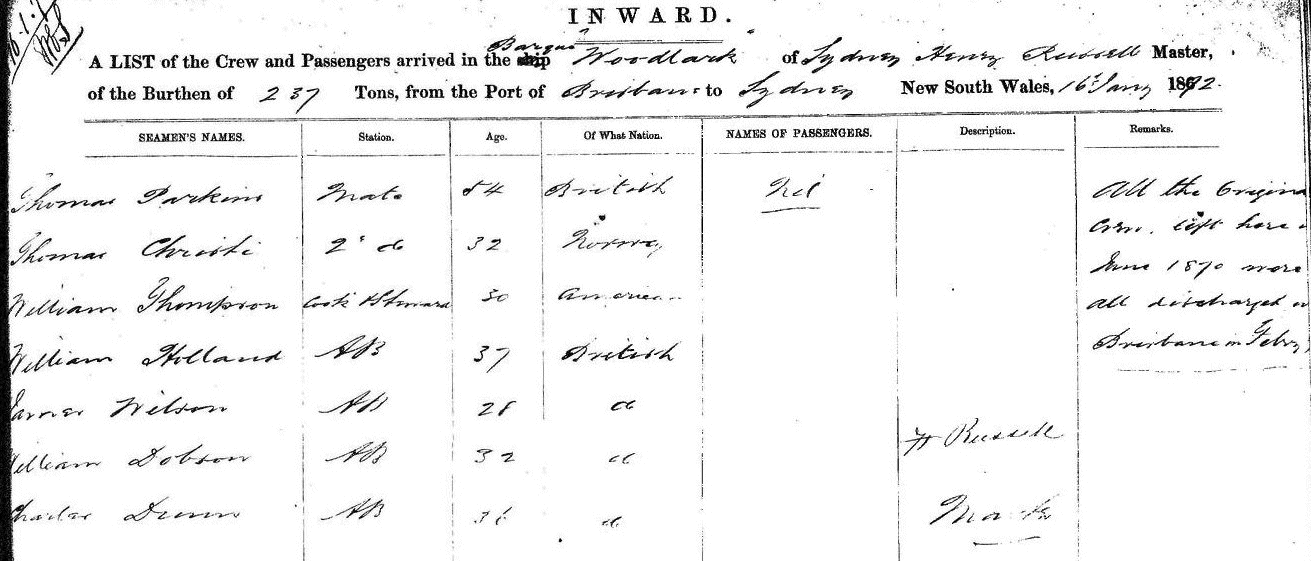 INWARD.
A LIST of the Crew and Passengers arrived in the ship Barque "Woodlark" of Sydney Henry Russell Master,
of the Burthen of 237 Tons, from the Port of Brisbane to Sydney New South Wales, 16 Jany 1872.
SEAMEN'S NAMES. Station. Age. Of What Nation. NAMES OF PASSENGERS. Description. Remarks.
Thomas Parkins Mate 54 British Nil All the Origina
Thomas Christi 2d do 32 Norway Crew. left here
William Thompson Cook & Steward 30 American June 1870 were
William Holland AB 37 British all discharged
James Wilson AB 28 do Brisbane in Febry
William Dobson AB 32 do H Russell
Charles Dunn AB do Master